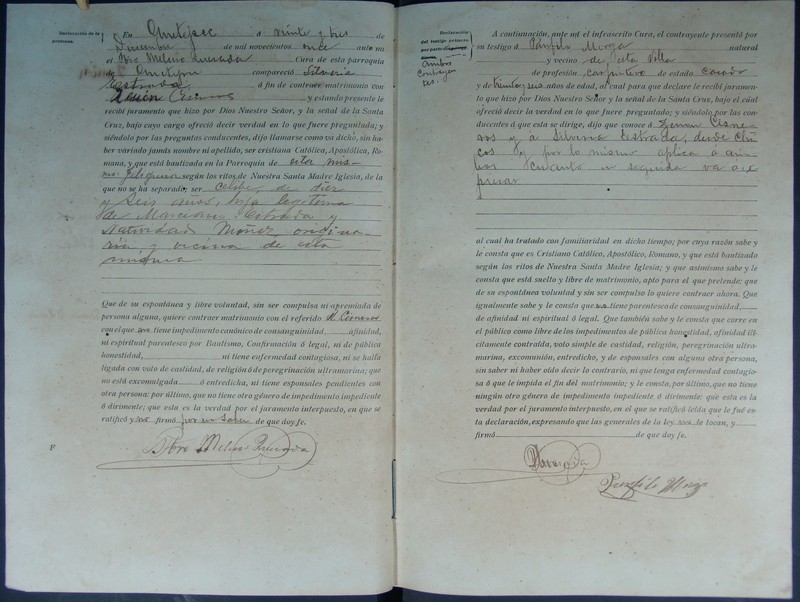 Declaración de la
En Ometepec á veinte y tres de
Diciembre de mil novecientos once ante mi
el Pbro Melino Quesada Cura de esta parroquia
de Ometepec compareció Silvaria
Estrada á fin de contraer matrimonio con
Cisneros y estando presente le
recibí juramento que hizo por Dios Nuestro Señor, y la señal de la Santa
Cruz, bajo cuyo cargo ofreció decir verdad en lo que fuere preguntada; y
siéndolo por las preguntas conducentes, dijo llamarse como va dicho, sin ha-
ber variado jamás nombre ni apellido, ser cristiana Católica, Apostólica, Ro-
mana, y que está bautizada en la Parroquia de esta mis-
ma feligresía según los ritos de Nuestra Santa Madre Iglesia, de la
que no se ha separado; ser célibe, de diez
y seis años, hija legítima
de Marciano Estrada y
Natividad Muñoz, origina-
ria y vecina de esta
misma
Que de su espontánea y libre voluntad, sin ser compulsa ni apremiada de
persona alguna, quiere contraer matrimonio con el referido Cisneros
con el que no tiene impedimento canónico de consanguinidad, afinidad,
ni espiritual parentesco por Bautismo, Confirmación ó legal, ni de pública
honestidad, ni tiene enfermedad contagiosa, ni se halla
ligada con voto de castidad, de religión ó de peregrinación ultramarina; que
no está excomulgada ó entredicha, ni tiene esponsales pendientes con
otra persona: por último, que no tiene otro género de impedimento impediente
ó dirimente; que esta es la verdad por el juramento interpuesto, en que se
ratificó y no firmó por no saber de que doy fe.
F
Pbro Melino Quesada
Declaración
del testigo primero
por parte
Ambos
contrayen
tes.
A continuación, ante mí el infrascrito Cura, el contrayente presentó por
su testigo á Panfilo Morga natural
y vecino de esta Villa
de profesión carpintero de estado casado
y de treinta y seis años de edad, al cual para que declare le recibí juramen-
to que hizo por Dios Nuestro Señor y la señal de la Santa Cruz, bajo el cual
ofreció decir la verdad en lo que fuere preguntado; y siéndolo por las con-
ducentes á que esta se dirige, dijo que conoce á Cisne-
ros y a Silvaria Estrada, desde chi-
cos y por lo mismo aplica á am-
bos cuanto en seguida va a ex
presar
al cual ha tratado con familiaridad en dicho tiempo; por cuya razón sabe y
le consta que es Cristiano Católico, Apostólico, Romano, y que está bautizado
según los ritos de Nuestra Santa Madre Iglesia; y que asimismo sabe y le
consta que está suelto y libre de matrimonio, apto para el que pretende: que
de su espontánea voluntad y sin ser compulso lo quiere contraer ahora. Que
igualmente sabe y le consta que no tiene parentesco de consanguinidad,
de afinidad ni espiritual ó legal. Que también sabe y le consta que corre en
el público como libre de los impedimentos de pública honestidad, afinidad ilí-
citamente contraída, voto simple de castidad, religión, peregrinación ultra-
marina, excomunión, entredicho, y de esponsales con alguna otra persona,
sin saber ni haber oído decir lo contrario, ni que tenga enfermedad contagio-
sa ó que le impida el fin del matrimonio; y le consta, por último, que no tiene
ningún otro género de impedimento impediente ó dirimente: que esta es la
verdad por el juramento interpuesto, en el que se ratificó leída que le fué es-
ta declaración, expresando que las generales de la ley no le tocan, y
firmó de que doy fe.
Quesada
Panfilo Morga